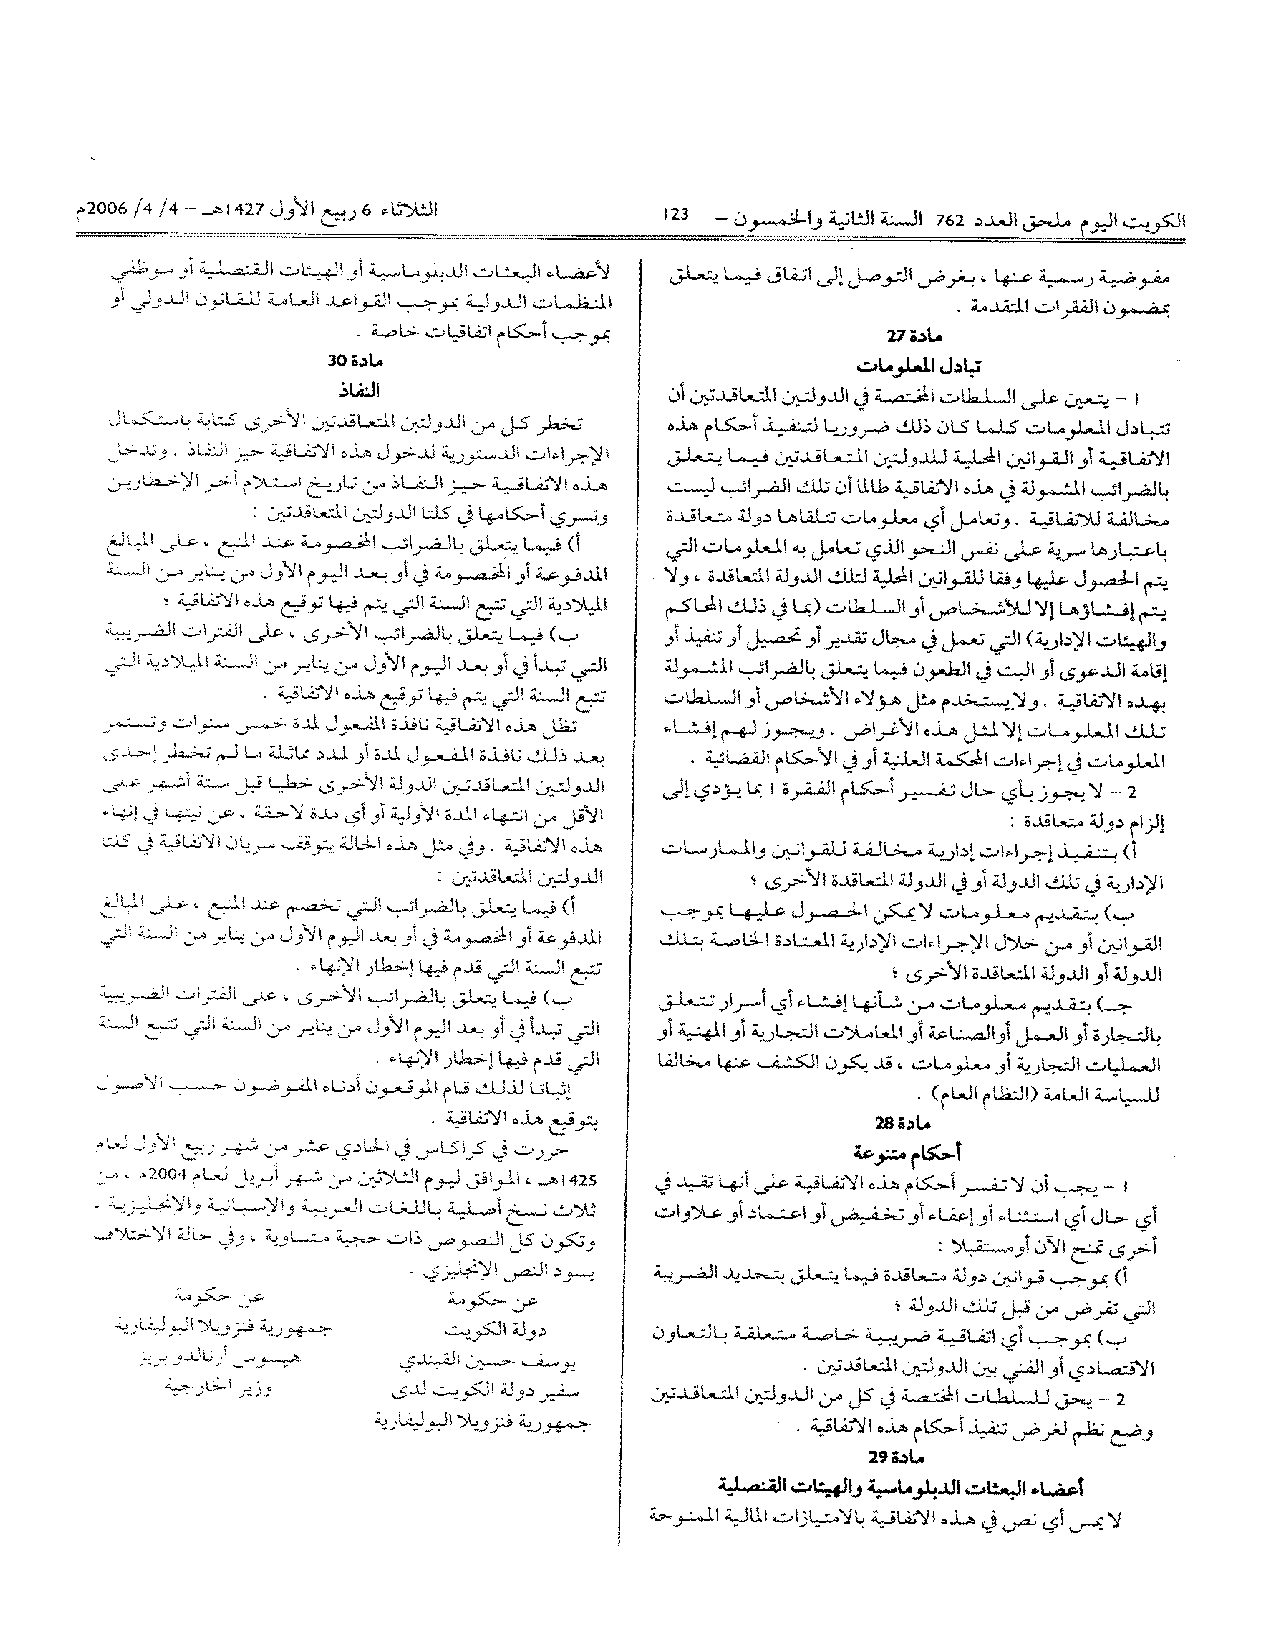 الكويت اليوم ملحق العدد 762 السنة الثانية والخمسون – 123
الثلاثاء 6 ربيع الأول 1427هـ – 4/ 4/ 2006م
مفوضية رسمية عنها ، بغرض التوصل إلى اتفاق فيما يتعلق
بمضمون الفقرات المتقدمة .
مادة 27
تبادل المعلومات
1 – يتعين على السلطات المختصة في الدولتين المتعاقدتين أن
تتبادل المعلومات كلما كان ذلك ضروريا لتنفيذ أحكام هذه
الاتفاقية أو القوانين المحلية للدولتين المتعاقدتين فيما يتعلق
بالضرائب المشمولة في هذه الاتفاقية طالما أن تلك الضرائب ليست
مخالفة للاتفاقية . وتعامل أي معلومات تتلقاها دولة متعاقدة
باعتبارها سرية على نفس النحو الذي تعامل به المعلومات التي
يتم الحصول عليها وفقا للقوانين المحلية لتلك الدولة المتعاقدة ، ولا
يتم إفشاؤها إلا للأشخاص أو السلطات (بما في ذلك المحاكم
والهيئات الإدارية) التي تعمل في مجال تقدير أو تحصيل أو تنفيذ أو
إقامة الدعوى أو البت في الطعون فيما يتعلق بالضرائب المشمولة
بهذه الاتفاقية . ولا يستخدم مثل هؤلاء الأشخاص أو السلطات
تلك المعلومات إلا لمثل هذه الأغراض . ويجوز لهم إفشاء
المعلومات في إجراءات المحكمة العلنية أو في الأحكام القضائية .
2 – لا يجوز بأي حال تفسير أحكام الفقرة 1 بما يؤدي إلى
إلزام دولة متعاقدة :
أ) بتنفيذ إجراءات إدارية مخالفة للقوانين والممارسات
الإدارية في تلك الدولة أو في الدولة المتعاقدة الأخرى ؛
ب) بتقديم معلومات لا يمكن الحصول عليها بموجب
القوانين أو من خلال الإجراءات الإدارية المعتادة الخاصة بتلك
الدولة أو الدولة المتعاقدة الأخرى ؛
جـ) بتقديم معلومات من شأنها إفشاء أي أسرار تتعلق
بالتجارة أو العمل أو الصناعة أو المعاملات التجارية أو المهنية أو
العمليات التجارية أو معلومات ، قد يكون الكشف عنها مخالفا
للسياسة العامة (النظام العام) .
مادة 28
أحكام متنوعة
1 – يجب أن لا تفسر أحكام هذه الاتفاقية على أنها تقيد في
أي حال أي استثناء أو إعفاء أو تخفيض أو اعتماد أو علاوات
أخرى تمنح الآن أو مستقبلا :
أ) بموجب قوانين دولة متعاقدة فيما يتعلق بتحديد الضريبة
التي تفرض من قبل تلك الدولة ؛
ب) بموجب أي اتفاقية ضريبية خاصة متعلقة بالتعاون
الاقتصادي أو الفني بين الدولتين المتعاقدتين .
2 – يحق للسلطات المختصة في كل من الدولتين المتعاقدتين
وضع نظم لغرض تنفيذ أحكام هذه الاتفاقية .
مادة 29
أعضاء البعثات الدبلوماسية والهيئات القنصلية
لا يمس أي نص في هذه الاتفاقية بالامتيازات المالية الممنوحة
لأعضاء البعثات الدبلوماسية أو الهيئات القنصلية أو موظفي
المنظمات الدولية بموجب القواعد العامة للقانون الدولي أو
بموجب أحكام اتفاقيات خاصة .
مادة 30
النفاذ
تخطر كل من الدولتين المتعاقدتين الأخرى كتابة باستكمال
الإجراءات الدستورية لدخول هذه الاتفاقية حيز النفاذ . وتدخل
هذه الاتفاقية حيز النفاذ من تاريخ استلام آخر الإخطارين
وتسري أحكامها في كلتا الدولتين المتعاقدتين :
أ) فيما يتعلق بالضرائب المخصومة عند المنبع ، على المبالغ
المدفوعة أو المخصومة في أو بعد اليوم الأول من يناير من السنة
الميلادية التي تتبع السنة التي يتم فيها توقيع هذه الاتفاقية ؛
ب) فيما يتعلق بالضرائب الأخرى ، على الفترات الضريبية
التي تبدأ في أو بعد اليوم الأول من يناير من السنة الميلادية التي
تتبع السنة التي يتم فيها توقيع هذه الاتفاقية .
تظل هذه الاتفاقية نافذة المفعول لمدة خمس سنوات وتستمر
بعد ذلك نافذة المفعول لمدة أو لمدد مماثلة ما لم تخطر إحدى
الدولتين المتعاقدتين الدولة الأخرى خطيا قبل ستة أشهر على
الأقل من انتهاء المدة الأولية أو أي مدة لاحقة ، عن نيتها في إنهاء
هذه الاتفاقية . وفي مثل هذه الحالة يتوقف سريان الاتفاقية في كلتا
الدولتين المتعاقدتين :
أ) فيما يتعلق بالضرائب التي تخصم عند المنبع ، على المبالغ
المدفوعة أو المخصومة في أو بعد اليوم الأول من يناير من السنة التي
تتبع السنة التي قدم فيها إخطار الإنهاء .
ب) فيما يتعلق بالضرائب الأخرى ، على الفترات الضريبية
التي تبدأ في أو بعد اليوم الأول من يناير من السنة التي تتبع السنة
التي قدم فيها إخطار الإنهاء .
إثباتا لذلك قام الموقعون أدناه المفوضون حسب الأصول
بتوقيع هذه الاتفاقية .
حررت في كراكاس في الحادي عشر من شهر ربيع الأول لعام
1425هـ ، الموافق ليوم الثلاثين من شهر أبريل لعام 2004م ، من
ثلاث نسخ أصلية باللغات العربية والإسبانية والإنجليزية .
وتكون كل النصوص ذات حجية متساوية ، وفي حالة الاختلاف
يسود النص الانجليزي .
عن حكومة عن حكومة
دولة الكويت جمهورية فنزويلا البوليفارية
يوسف حسين القبندي هيسوس أرنالدو بريز
سفير دولة الكويت لدى وزير الخارجية
جمهورية فنزويلا البوليفارية